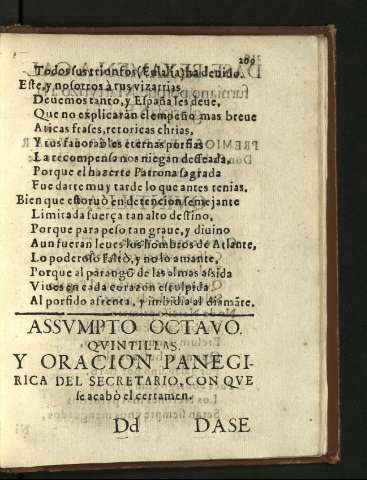 209
Todos sus triunfos (Eulalia) ha deuido.
Este, y nosotros à tus vizarrias
Deuemos tanto, y España les deue,
Que no explicarán el empeño mas breue
Aticas frases, retoricas chrias,
Y tus fauorables eternas porfias
La recompensa nos niegan desseada,
Porque el hazerte Patrona sagrada
Fue darte muy tarde lo que antes tenias.
Bien que estoruò en detencion semejante
Limitada fuerça tan alto destino,
Porque para peso tan graue, y diuino
Aun fueran leues los hombros de Atlante,
Lo poderoso faltò, y no lo amante,
Porque al parangõ de las almas assida
Viues en cada corazon esculpida
Al porfido afrenta, y imbidia al diamãte.
ASSVMPTO OCTAVO.
QVINTILLAS.
Y ORACION PANEGI-
RICA DEL SECRETARIO, CON QVE
se acabò el certamen.
Dd DASE